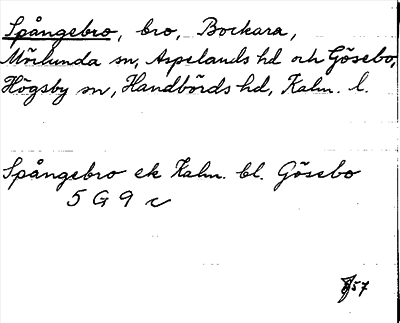 Spångebro, bro, Bockara,
Mörlunda sn, Aspelands hd och Gösebo,
Högsby sn, Handbörds hd, Kalm. l.
Spångebro ek Kalm. bl. Gösebo
5 G 9 c
57